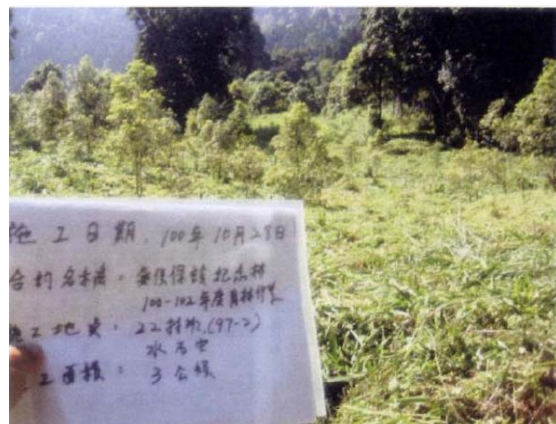 施工日期：100年10月28日
合約名稱：安侯保護紀念林
100-102年度育林作業
施工地点：22林班(97-2)
施工面積：3公頃